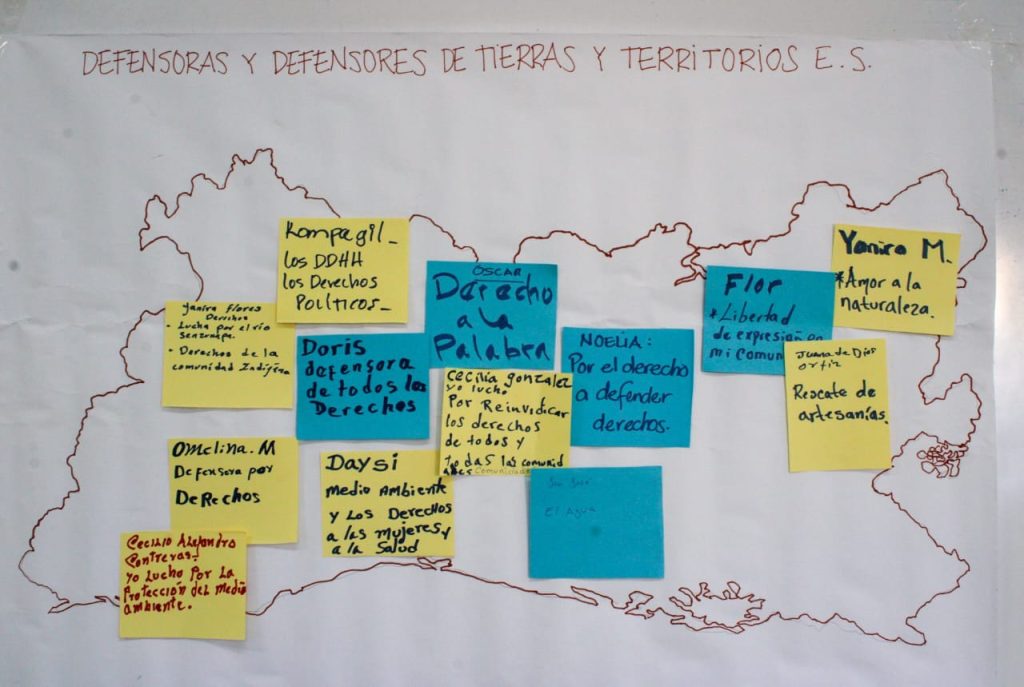 DEFENSORAS Y DEFENSORES DE TIERRAS Y TERRITORIOS E.S.
Kompagil_
los DDHH
los Derechos
Políticos_
Yanira flores
Derechos
- Lucha por el río
sensunapa.
- Derechos de la
comunidad Indígena
Doris
defensora
de todos los
Derechos
OSCAR
Derecho
a la
Palabra
Cecilia gonzalez
yo lucho
Por Reinvidicar
los derechos
de todos y
todas las comunid
ades Comunicado
NOELIA:
Por el derecho
a defender
derechos.
Flor
*Libertad
de expresión en
mi comun
Yanira M.
*Amor a la
naturaleza.
Juana de Dios
ortiz
Rescate de
artesanías.
Omelina. M
Defensora por
DeRechos
Daysi
Medio Ambiente
y Los Derechos
a las mujeres y
a la Salud
El Agua
Cecilio Alejandro
Contreras.
Yo Lucho Por La
Protección del medio
ambiente.